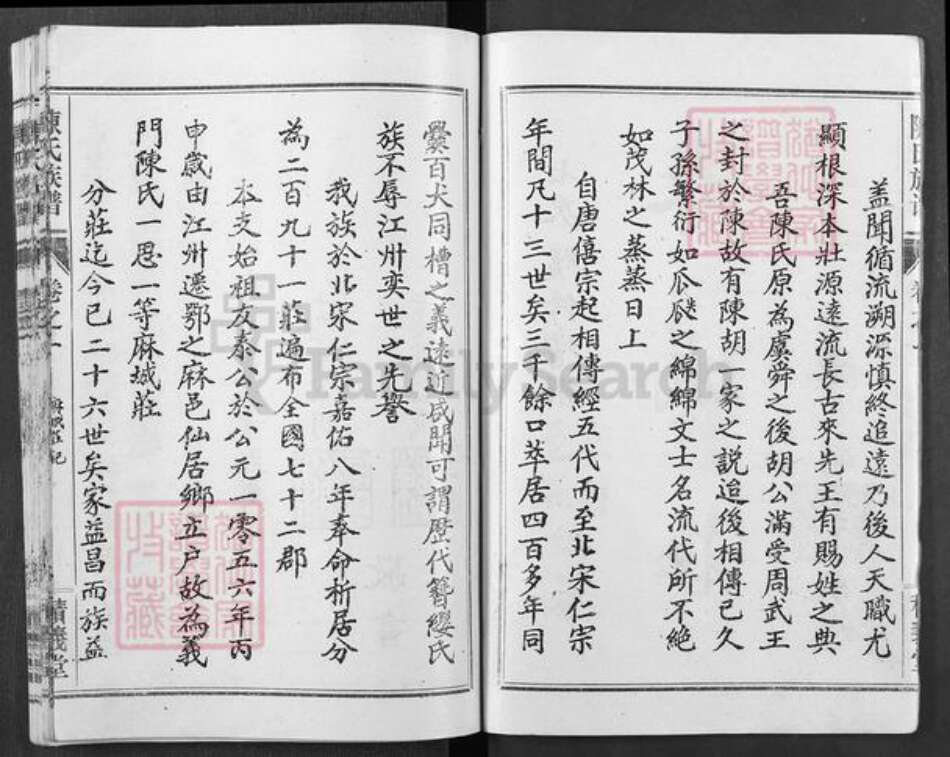 蓋聞循流溯源慎終追遠乃後人天職尤
顯根深本壯源遠流長古來先王有賜姓之典
吾陳氏原為虞舜之後胡公滿受周武王
之封於陳故有陳胡一家之説迨後相傳已久
子孫繁衍如瓜瓞之綿綿文士名流代所不絶
如茂林之蒸蒸日上
自唐僖宗起相傳經五代而至北宋仁宗
年間凡十三世矣三千餘口萃居四百多年同
爨百犬同槽之義遠近咸聞可謂歷代簪纓氏
族不辱江州奕世之先譽
我族於北宋仁宗嘉佑八年奉命析居分
為二百九十一莊遍布全國七十二郡
本支始祖友泰公於公元一零五六年丙
申歲由江州遷鄂之麻邑仙居鄉立户故為義
門陳氏一恩一等麻城莊
分莊迄今已二十六世矣家益昌而族益
陳氏族譜
卷之一
積義堂
FamilySearch